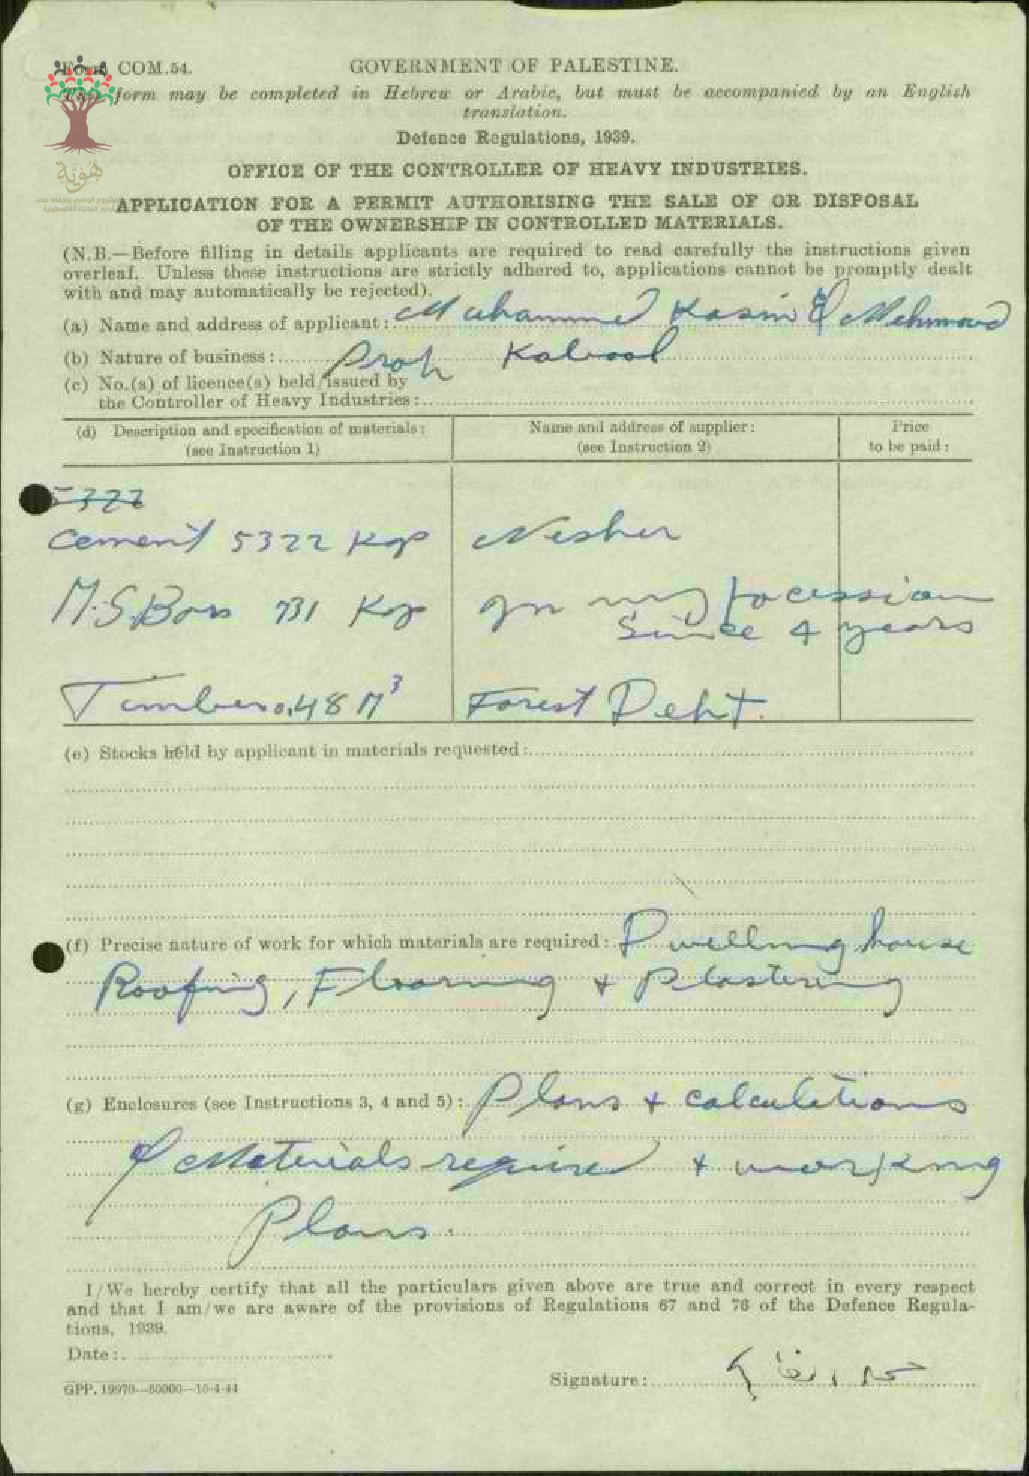 Form COM.54.
GOVERNMENT OF PALESTINE.
This form may be completed in Hebrew or Arabic, but must be accompanied by an English
translation.
Defence Regulations, 1939.
OFFICE OF THE CONTROLLER OF HEAVY INDUSTRIES.
APPLICATION FOR A PERMIT AUTHORISING THE SALE OF OR DISPOSAL
OF THE OWNERSHIP IN CONTROLLED MATERIALS.
هوية
(N.B.—Before filling in details applicants are required to read carefully the instructions given
overleaf. Unless these instructions are strictly adhered to, applications cannot be promptly dealt
with and may automatically be rejected).
(a) Name and address of applicant: Muhammed Kasim El Mehmoud
(b) Nature of business: Kabool
(c) No.(s) of licence(s) held/issued by
the Controller of Heavy Industries:
(d) Description and specification of materials:
(see Instruction 1)
Name and address of supplier:
(see Instruction 2)
Price
to be paid:
5322
Cement 5322 Kgs Nesher
M.S.Bars 731 Kgs In my pocession
Since 4 years
Timber 0.48 M³ Forest Dept.
(e) Stocks held by applicant in materials requested:
(f) Precise nature of work for which materials are required: Dwelling house
Roofing, Flooring + Plastering
(g) Enclosures (see Instructions 3, 4 and 5): Plans + calculations
of Materials required + working
Plans.
I/We hereby certify that all the particulars given above are true and correct in every respect
and that I am/we are aware of the provisions of Regulations 67 and 76 of the Defence Regula-
tions, 1939.
Date:
GPP. 19970—50000—15-4-44
Signature: